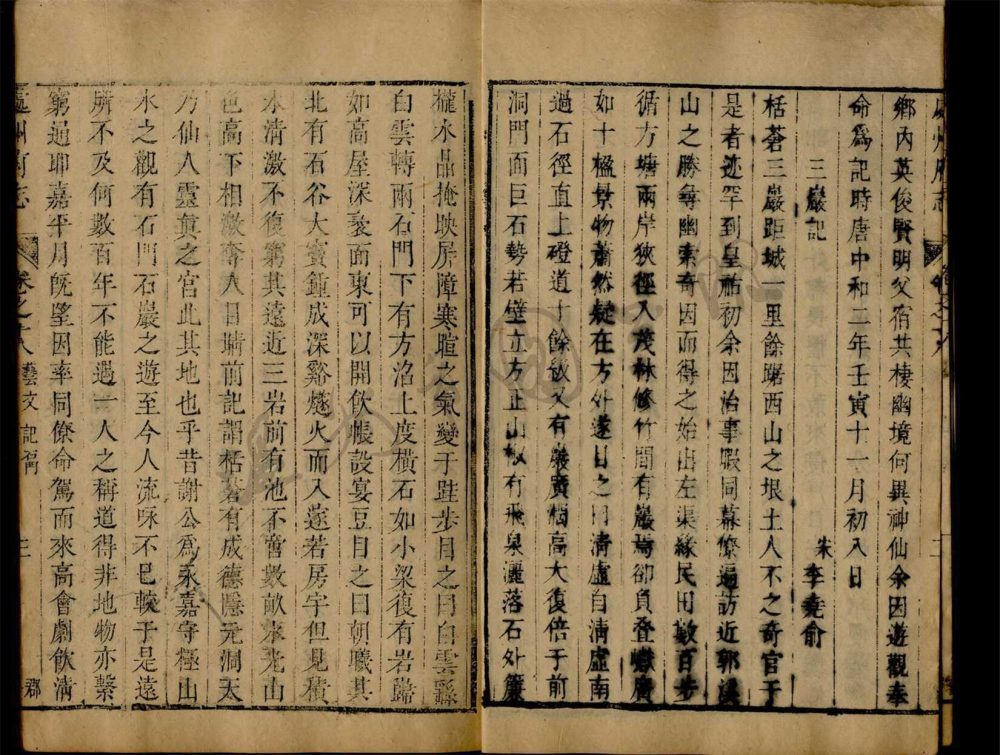 處州府志
鄉內英俊賢明父宿共棲幽境何異神仙余因遊觀奉
命爲記時唐中和二年壬寅十一月初入日
三巖記
宋 李堯俞
栝蒼三巖距城一里餘踞西山之垠土人不之奇官于
是者迹罕到皇祐初余因治事暇同幕僚遍訪近郭溪
山之勝尋幽索奇因而得之始出左渠緣民田數百步
循方塘兩岸狹徑入茂林修竹間有巖焉卻負登巘廣
如十楹景物蕭然疑在方外遂目之曰清虛自清虛南
過石徑直上磴道十餘級又有巖廣幅高大復倍于前
洞門面巨石勢若壁立方正山椒有飛泉灑落石外簾
櫳水晶掩映屏障寒暄之氣變于跬步目之曰白雲繇
白雲轉兩石門下有方沼上度橫石如小梁復有岩歸
如高屋深邃面東可以開飲帳設宴豆目之曰朝曦其
北有石谷大竇鍾成深谿燧火而入遂若房宇但見積
水清激不復窮其遠近三岩前有池不啻數畝泉光山
色高下相激奪人目睛前記謂栝蒼有成德隱元洞天
乃仙人靈眞之宮此其地也乎昔謝公爲永嘉守極山
水之觀有石門石巖之遊至今人流咏不已較于是遠
所不及何數百年不能遇一人之稱道得非地物亦繫
窮通耶嘉平月旣墍因率同僚命駕而來高會劇飲清
處州府志 卷之十八 藝文 記 三
郡